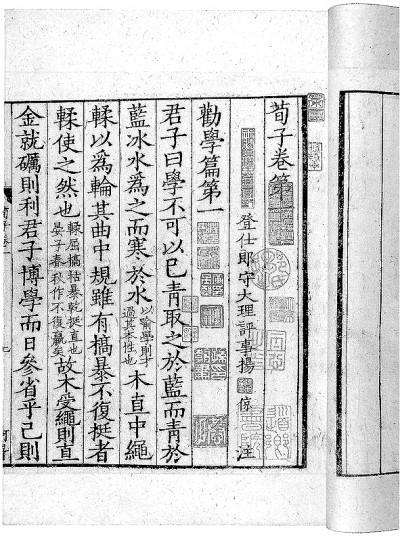 荀子卷第
登仕郎守大理評事揚倞注
勸學篇第一
君子曰學不可以已青取之於藍而青於
藍冰水爲之而寒於水以喻學則才過其本性也木直中繩
輮以爲輪其曲中規雖有槁暴不復挺者
輮使之然也輮屈槁枯暴乾挺直也晏子春秋作不復羸矣故木受繩則直
金就礪則利君子博學而日參省乎己則